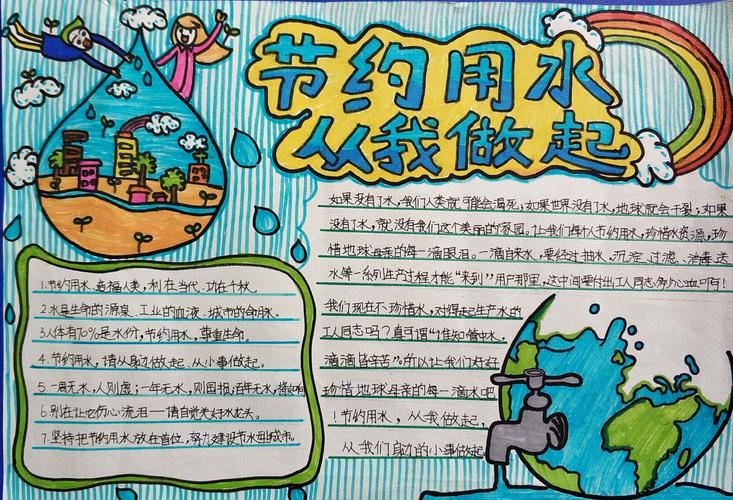 节约用水
从我做起
如果没有了水，我们人类就可能会渴死；如果世界没有了水，地球就会干裂；如果
没有了水，就没有我们这个美丽的家园。让我们每个人节约用水，珍惜水资源，珍
惜地球母亲的每一滴眼泪。一滴自来水，要经过抽水，沉淀、过滤、消毒、送
水等一系列生产过程才能“来到”用户那里，这中间要付出工人同志
我们现在不珍惜水，对得起生产水的
工人同志吗？真可谓“谁知管中水，
滴滴皆辛苦”。所以让我们好好
珍惜地球母亲的每一滴水吧
！节约用水，从我做起，
从我们身边的小事做起
1.节约用水、造福人类，利在当代、功在千秋。
2.水是生命的源泉、工业的血液、城市的命脉。
3.人体有70%是水份，节约用水，尊重生命。
4.节约用水，请从身边做起、从小事做起。
5.一周无水，人则虑；一年无水，则国报；百年无水，
6.别在让它伤心流泪——请自觉关好水龙头。
7.坚持把节约用水放在首位，努力建设节水型城市。